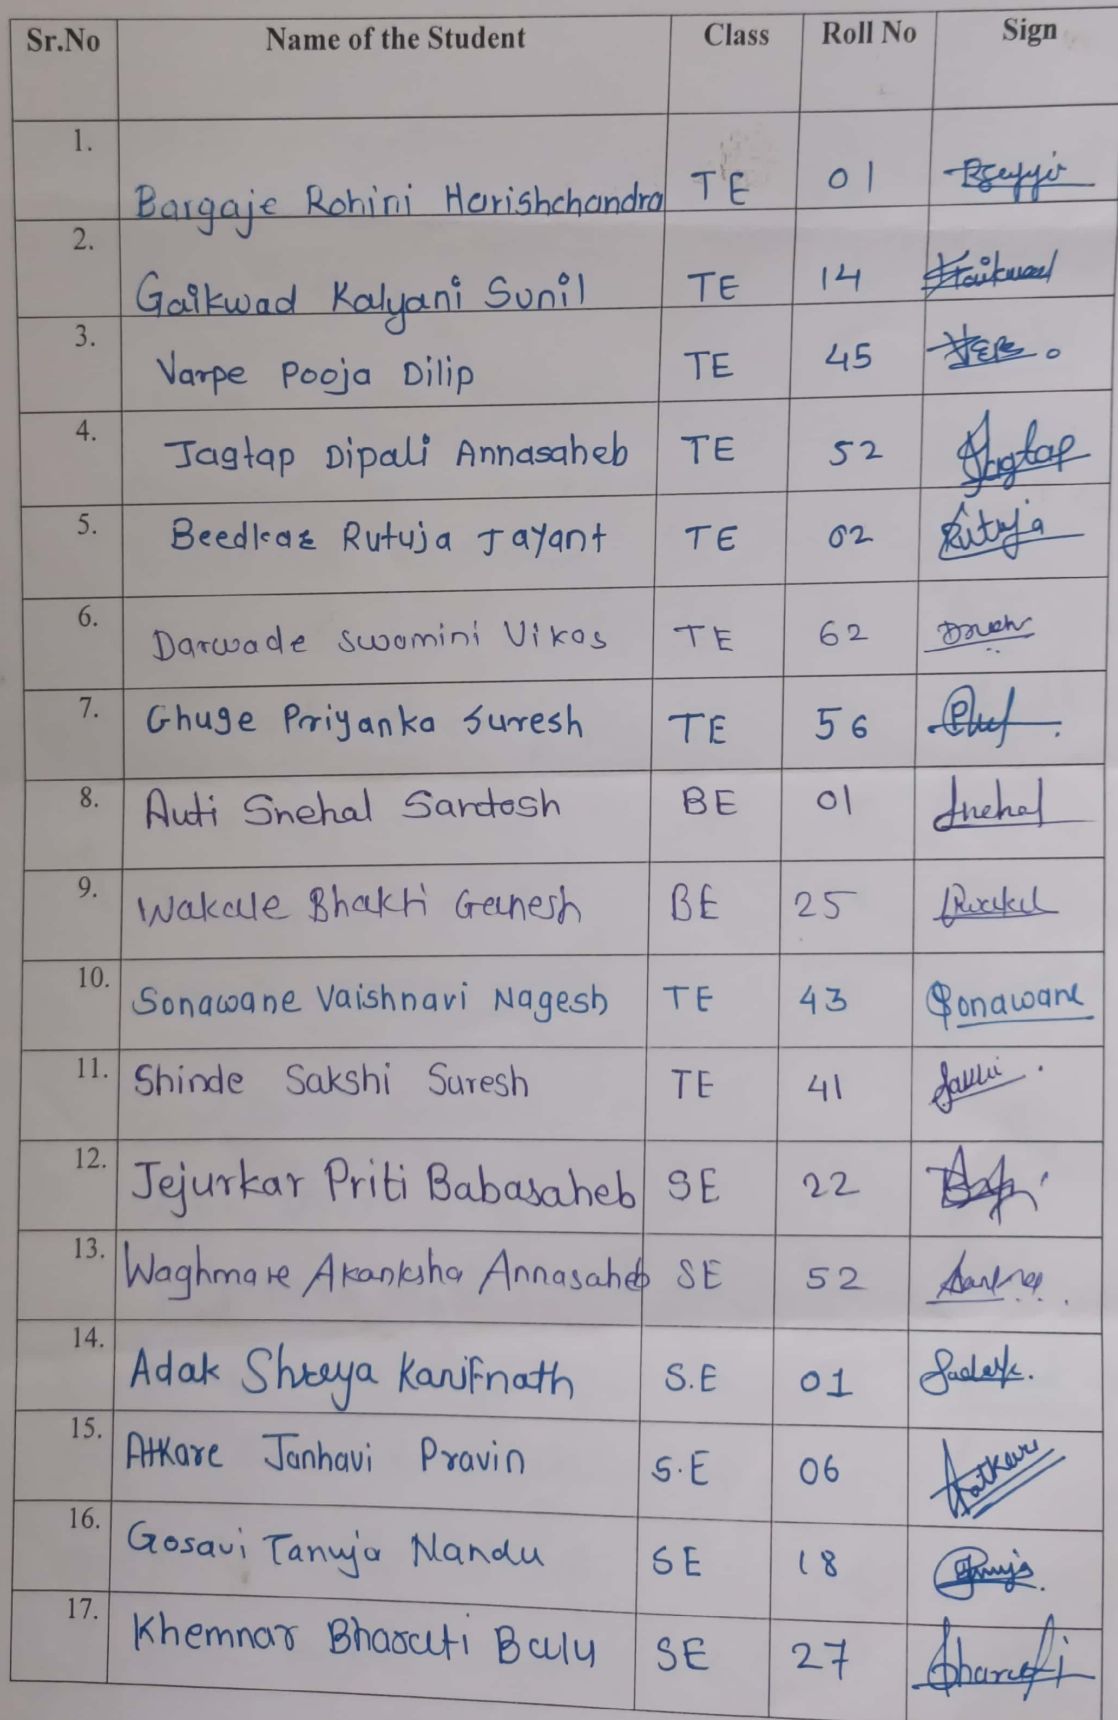 Sr.No Name of the Student Class Roll No Sign
1. Bargaje Rohini Harishchandra TE 01
2. Gaikwad Kalyani Sunil TE 14 Gaikwad
3. Varpe Pooja Dilip TE 45
4. Jagtap Dipali Annasaheb TE 52 Jagtap
5. Beedkar Rutuja Jayant TE 02 Rutuja
6. Darwade Swamini Vikas TE 62
7. Ghuge Priyanka Suresh TE 56
8. Auti Snehal Santosh BE 01 Snehal
9. Wakale Bhakti Ganesh BE 25
10. Sonawane Vaishnavi Nagesh TE 43 Sonawane
11. Shinde Sakshi Suresh TE 41
12. Jejurkar Priti Babasaheb SE 22
13. Waghmare Akanksha Annasaheb SE 52
14. Adak Shreya Kanifnath S.E 01
15. Atkare Janhavi Pravin S.E 06 Aatkare
16. Gosavi Tanuja Nandu SE 18
17. Khemnar Bharati Balu SE 27 Bharati